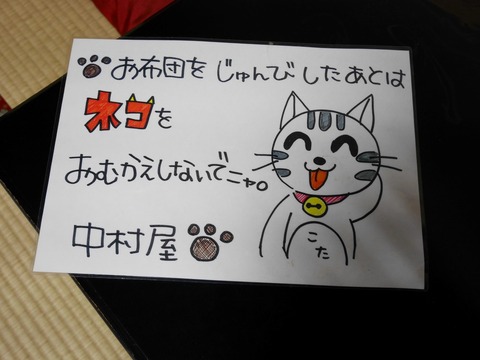 お布団をじゅんびしたあとは
ネコを
おむかえしないでニャ。
中村屋
こた